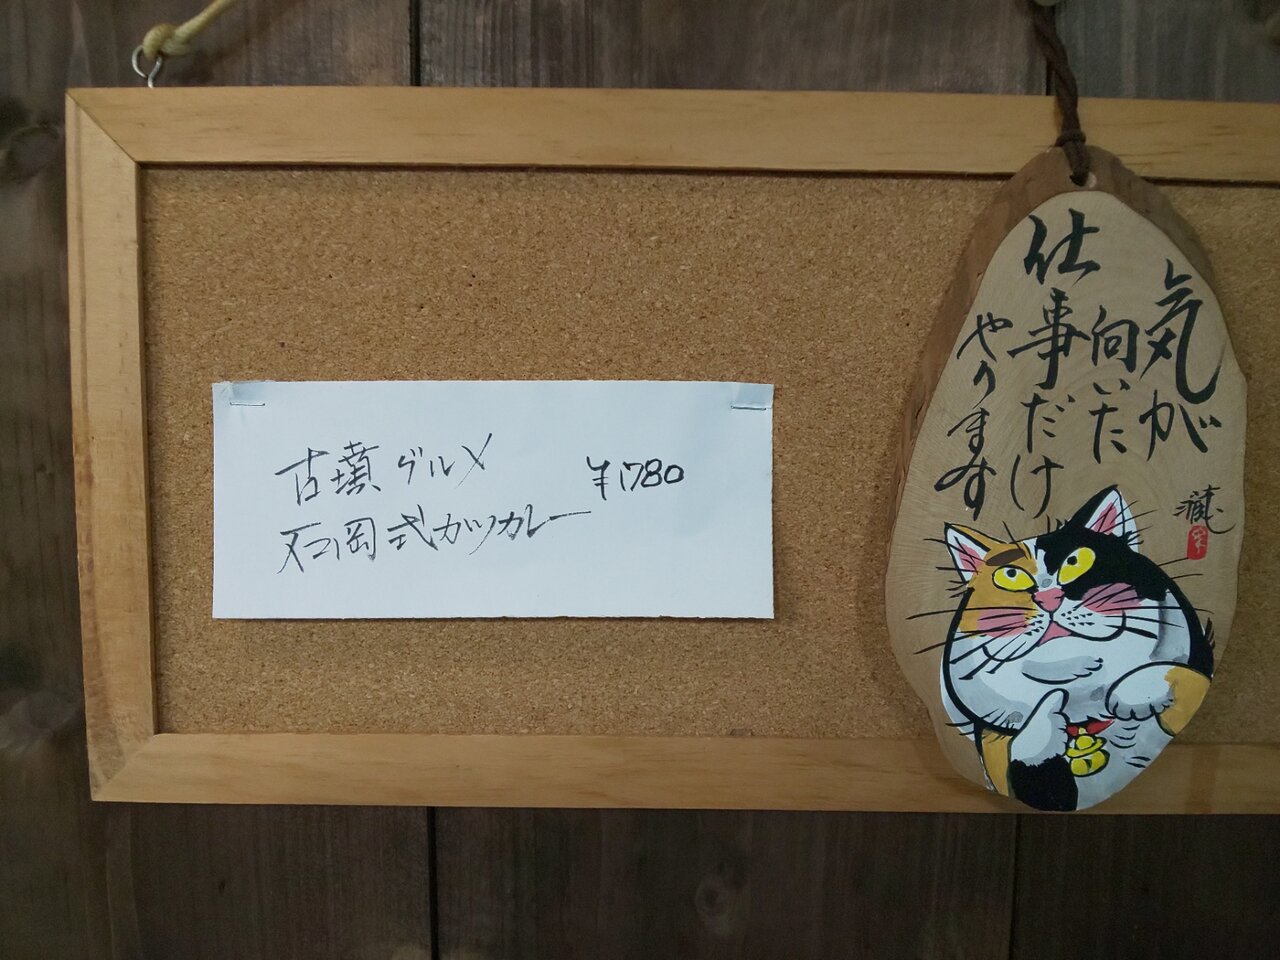 古墳グルメ
石岡式カツカレー
¥1780
気が
向いた
仕事だけ
やります